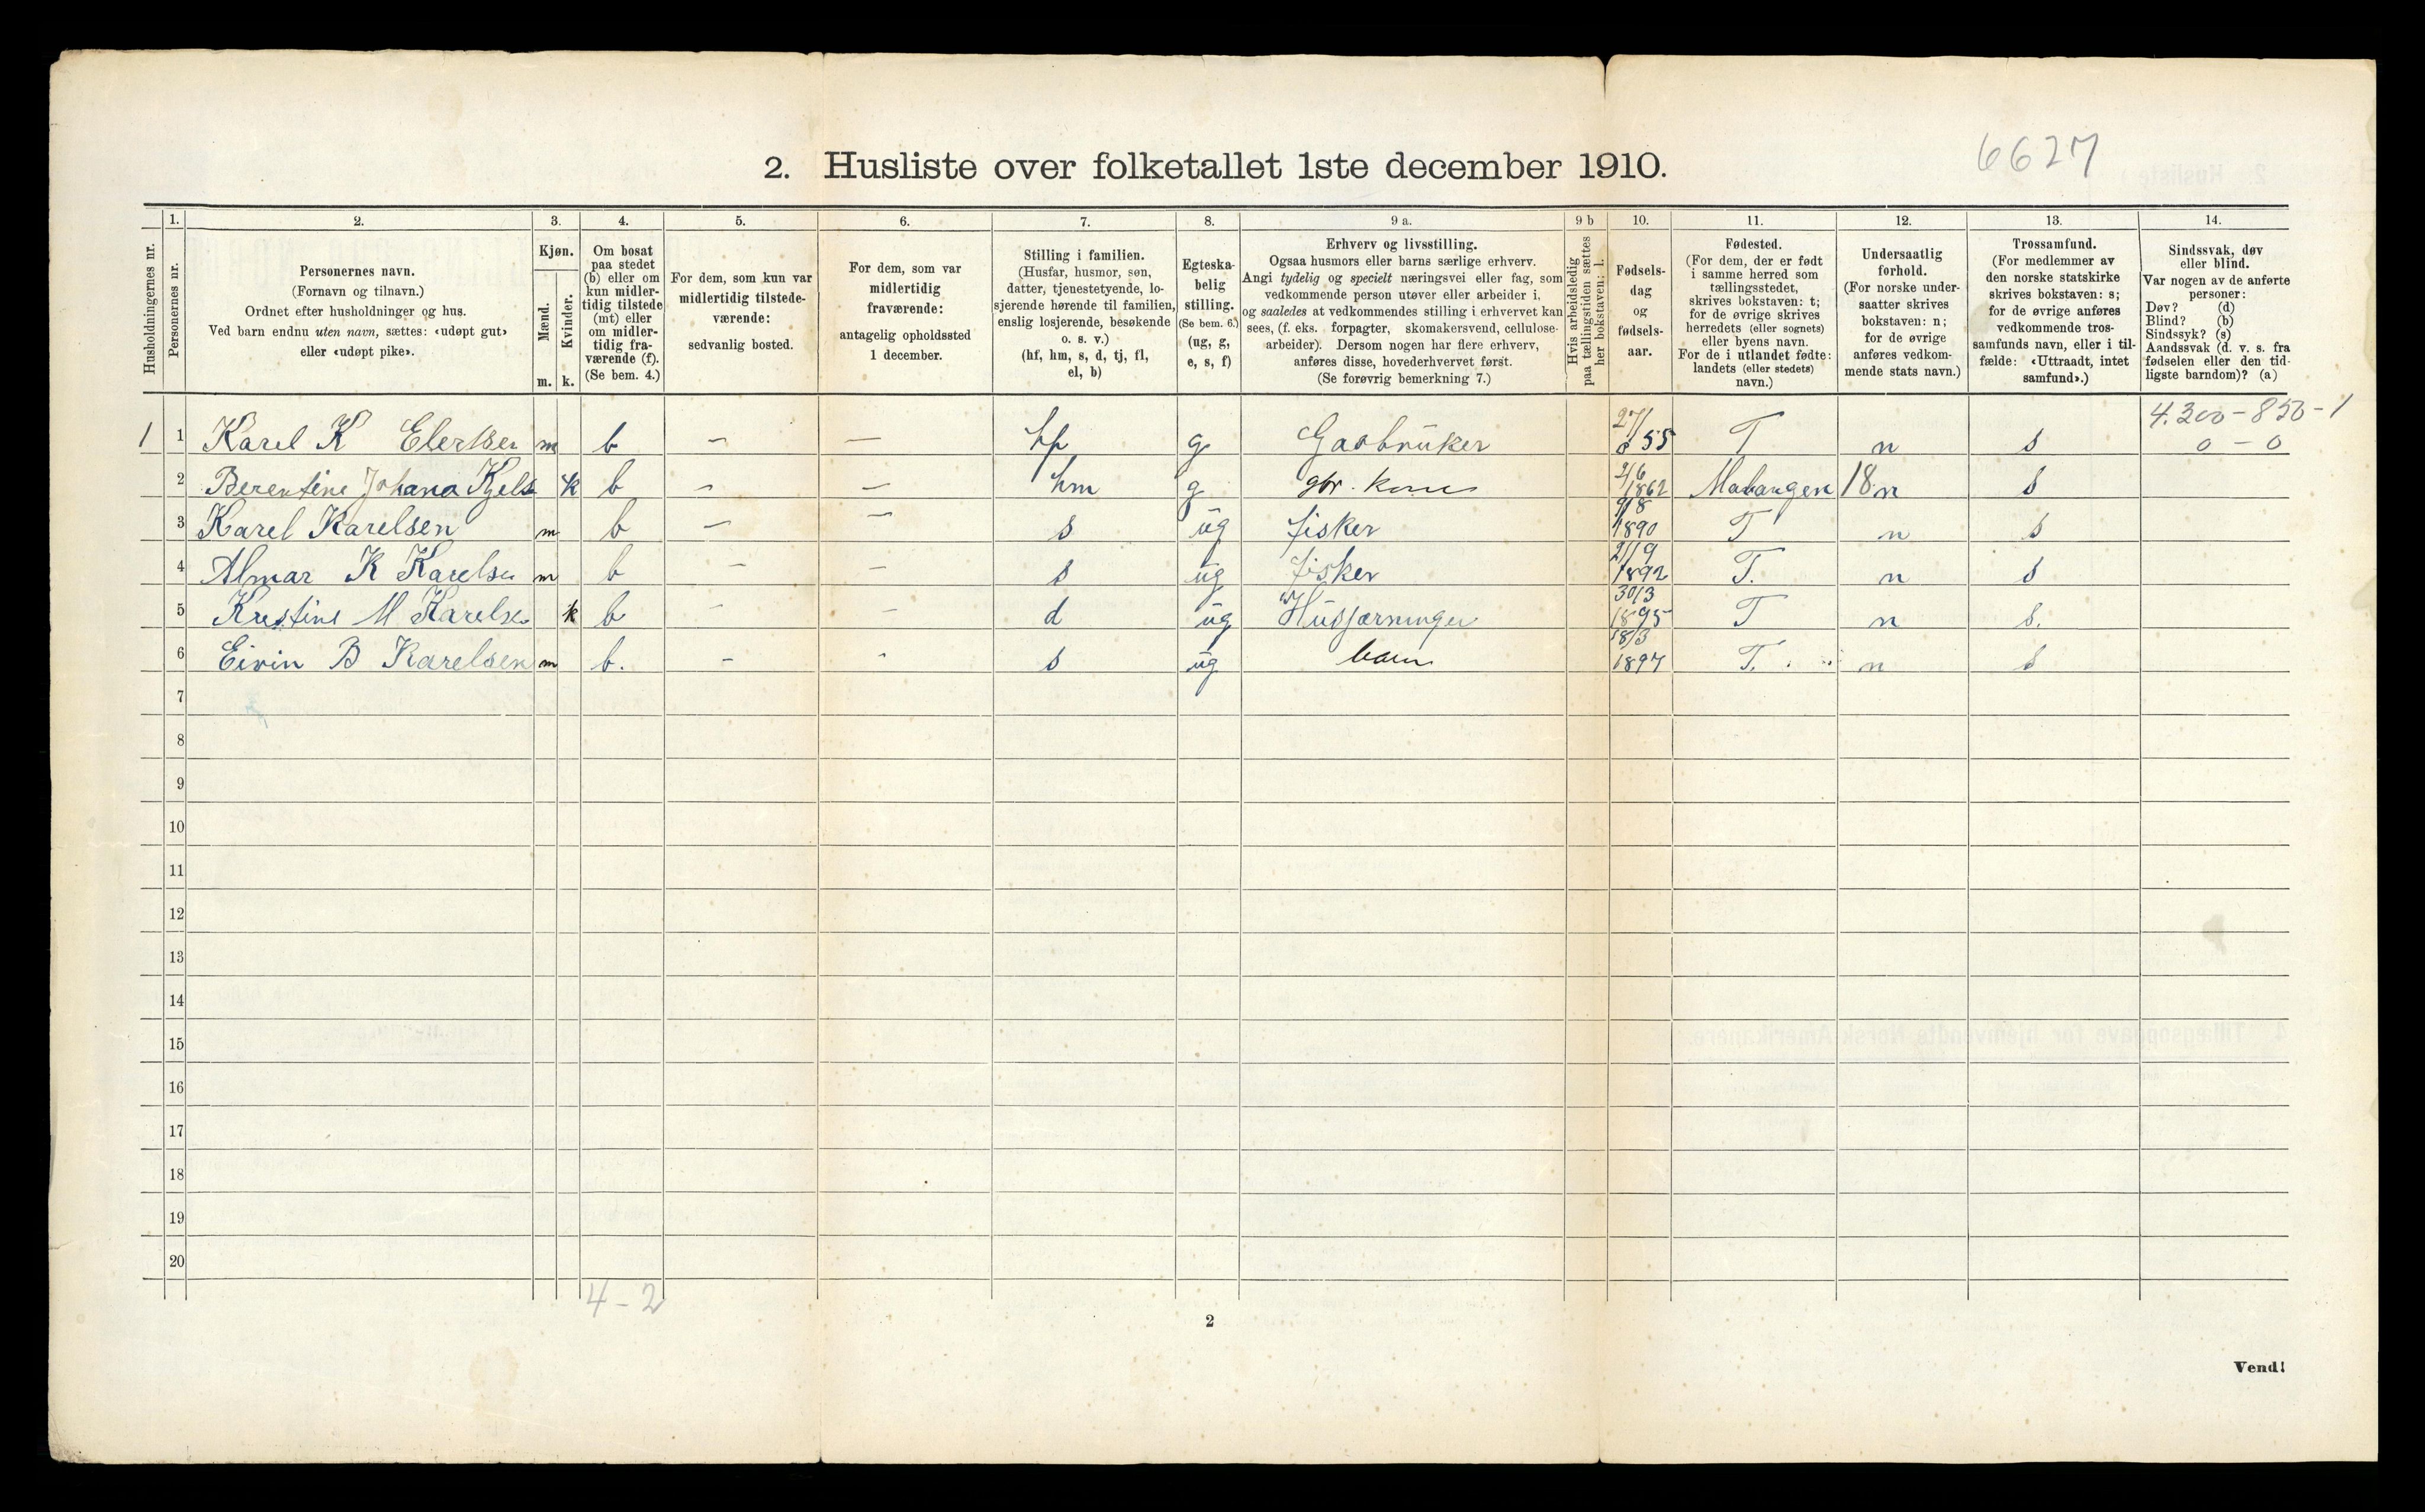 6627
2. Husliste over folketallet 1ste december 1910.
Husholdningernes nr.
1.
Personernes nr.
2.
Personernes navn.
(Fornavn og tilnavn.)
Ordnet efter husholdninger og hus.
Ved barn endnu uten navn, sættes: «udøpt gut»
eller «udøpt pike».
3.
Kjøn.
Mænd.
Kvinder.
m. k.
4.
Om bosat
paa stedet
(b) eller om
kun midler-
tidig tilstede
(mt) eller
om midler-
tidig fra-
værende (f).
(Se bem. 4.)
5.
For dem, som kun var
midlertidig tilstede-
værende:
sedvanlig bosted.
6.
For dem, som var
midlertidig
fraværende:
antagelig opholdssted
1 december.
7.
Stilling i familien.
(Husfar, husmor, søn,
datter, tjenestetyende, lo-
sjerende hørende til familien,
enslig losjerende, besøkende
o. s. v.)
(hf, hm, s, d, tj, fl,
el, b)
8.
Egteska-
belig
stilling.
(Se bem. 6.)
(ug, g,
e, s, f)
9 a.
Erhverv og livsstilling.
Ogsaa husmors eller barns særlige erhverv.
Angi tydelig og specielt næringsvei eller fag, som
vedkommende person utøver eller arbeider i,
og saaledes at vedkommendes stilling i erhvervet kan
sees, (f. eks. forpagter, skomakersvend, cellulose-
arbeider). Dersom nogen har flere erhverv,
anføres disse, hovederhvervet først.
(Se forøvrig bemerkning 7.)
9 b
Hvis arbeidsledig
paa tællingstiden sættes
her bokstaven: l.
10.
Fødsels-
dag
og
fødsels-
aar.
11.
Fødested.
(For dem, der er født
i samme herred som
tællingsstedet,
skrives bokstaven: t;
for de øvrige skrives
herredets (eller sognets)
eller byens navn.
For de i utlandet fødte:
landets (eller stedets)
navn.)
12.
Undersaatlig
forhold.
(For norske under-
saatter skrives
bokstaven: n;
for de øvrige
anføres vedkom-
mende stats navn.)
13.
Trossamfund.
(For medlemmer av
den norske statskirke
skrives bokstaven: s;
for de øvrige anføres
vedkommende tros-
samfunds navn, eller i til-
fælde: «Uttraadt, intet
samfund».)
14.
Sindssvak, døv
eller blind.
Var nogen av de anførte
personer:
Døv? (d)
Blind? (b)
Sindssyk? (s)
Aandssvak (d. v. s. fra
fødselen eller den tid-
ligste barndom)? (a)
4.300-850-1
0-0
1 1 Karel K Elertsen m b — — hf g Gasbrüker 27/8 55 T n s
2 Berentine Johana k b — — hm g gbr. kone 2/6 1862 Malangen 18 n s
3 Karel Karelsen m b — — s ug fisker 9/8 1890 T n s
4 Almar K Karelsen m b — — s ug fisker 21/9 1892 T. n s
5 Kristine M Karelsen k b — — d ug 30/3 1895 T n s.
6 Eivin B Karelsen m b. — — s ug barn 18/3 1897 T. n s
7
8
9
10
11
12
13
14
15
16
17
18
19
20
4-2
2
Vend!